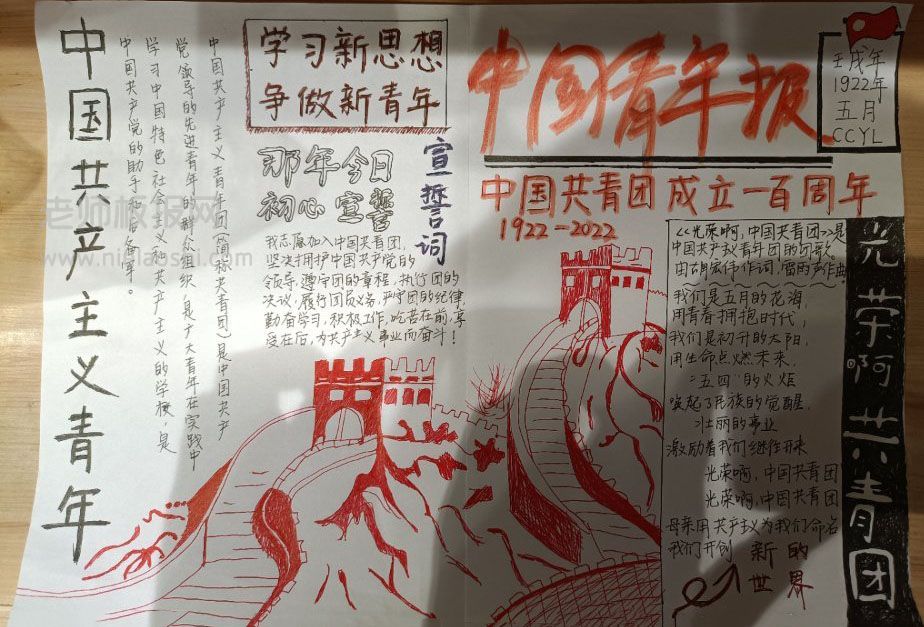 中国共产主义青年
中国共产主义青年团(简称共青团)是中国共产
党领导的先进青年的群众组织,是广大青年在实践中
学习中国特色社会主义和共产主义的学校,是
中国共产党的助手和后备军。
学习新思想
争做新青年
那年今日
初心宣誓
宣誓词
我志愿加入中国共青团,
坚决拥护中国共产党的
领导,遵守团的章程,执行团的
决议,履行团员义务,严守团的纪律,
勤奋学习,积极工作,吃苦在前,享
受在后,为共产主义事业而奋斗!
中国青年报
壬戌年
1922年
五月
CCYL
中国共青团成立一百周年
1922-2022
《光荣啊,中国共青团》是
中国共产主义青年团的团歌
由胡宏伟作词,雷雨声作曲
我们是五月的花海,
用青春拥抱时代,
我们是初升的太阳,
用生命点燃未来.
"五四"的火炬
唤起了民族的觉醒,
壮丽的事业
激励着我们继往开来
光荣啊,中国共青团
光荣啊,中国共青团
母亲用共产主义为我们命名
我们开创新的
世界
光荣啊共青团
老师板报网